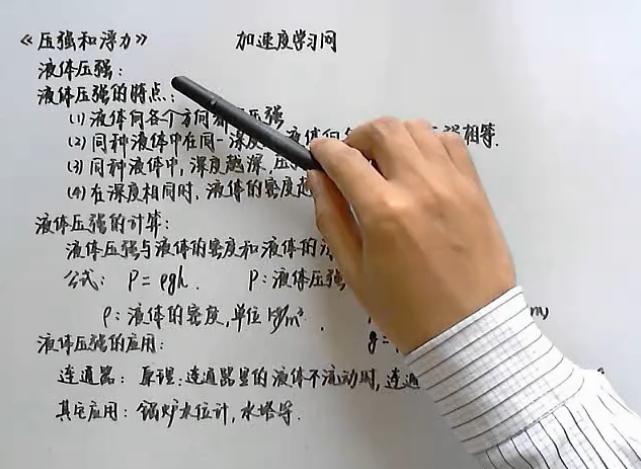 《压强和浮力》 加速度学习网
液体压强：
液体压强的特点：
(1) 液体向各个方向 压强
(2) 同种液体中在同一深度 液体向 强相等.
(3) 同种液体中, 深度越深, 压
(4) 在深度相同时, 液体的密度越
液体压强的计算：
液体压强与液体的密度和液体的
公式： P=ρgh. P：液体压强
ρ：液体的密度, 单位 kg/m³. m)
液体压强的应用： g=
连通器： 原理：连通器里的液体不流动时, 连通
其它应用： 锅炉水位计, 水塔等.